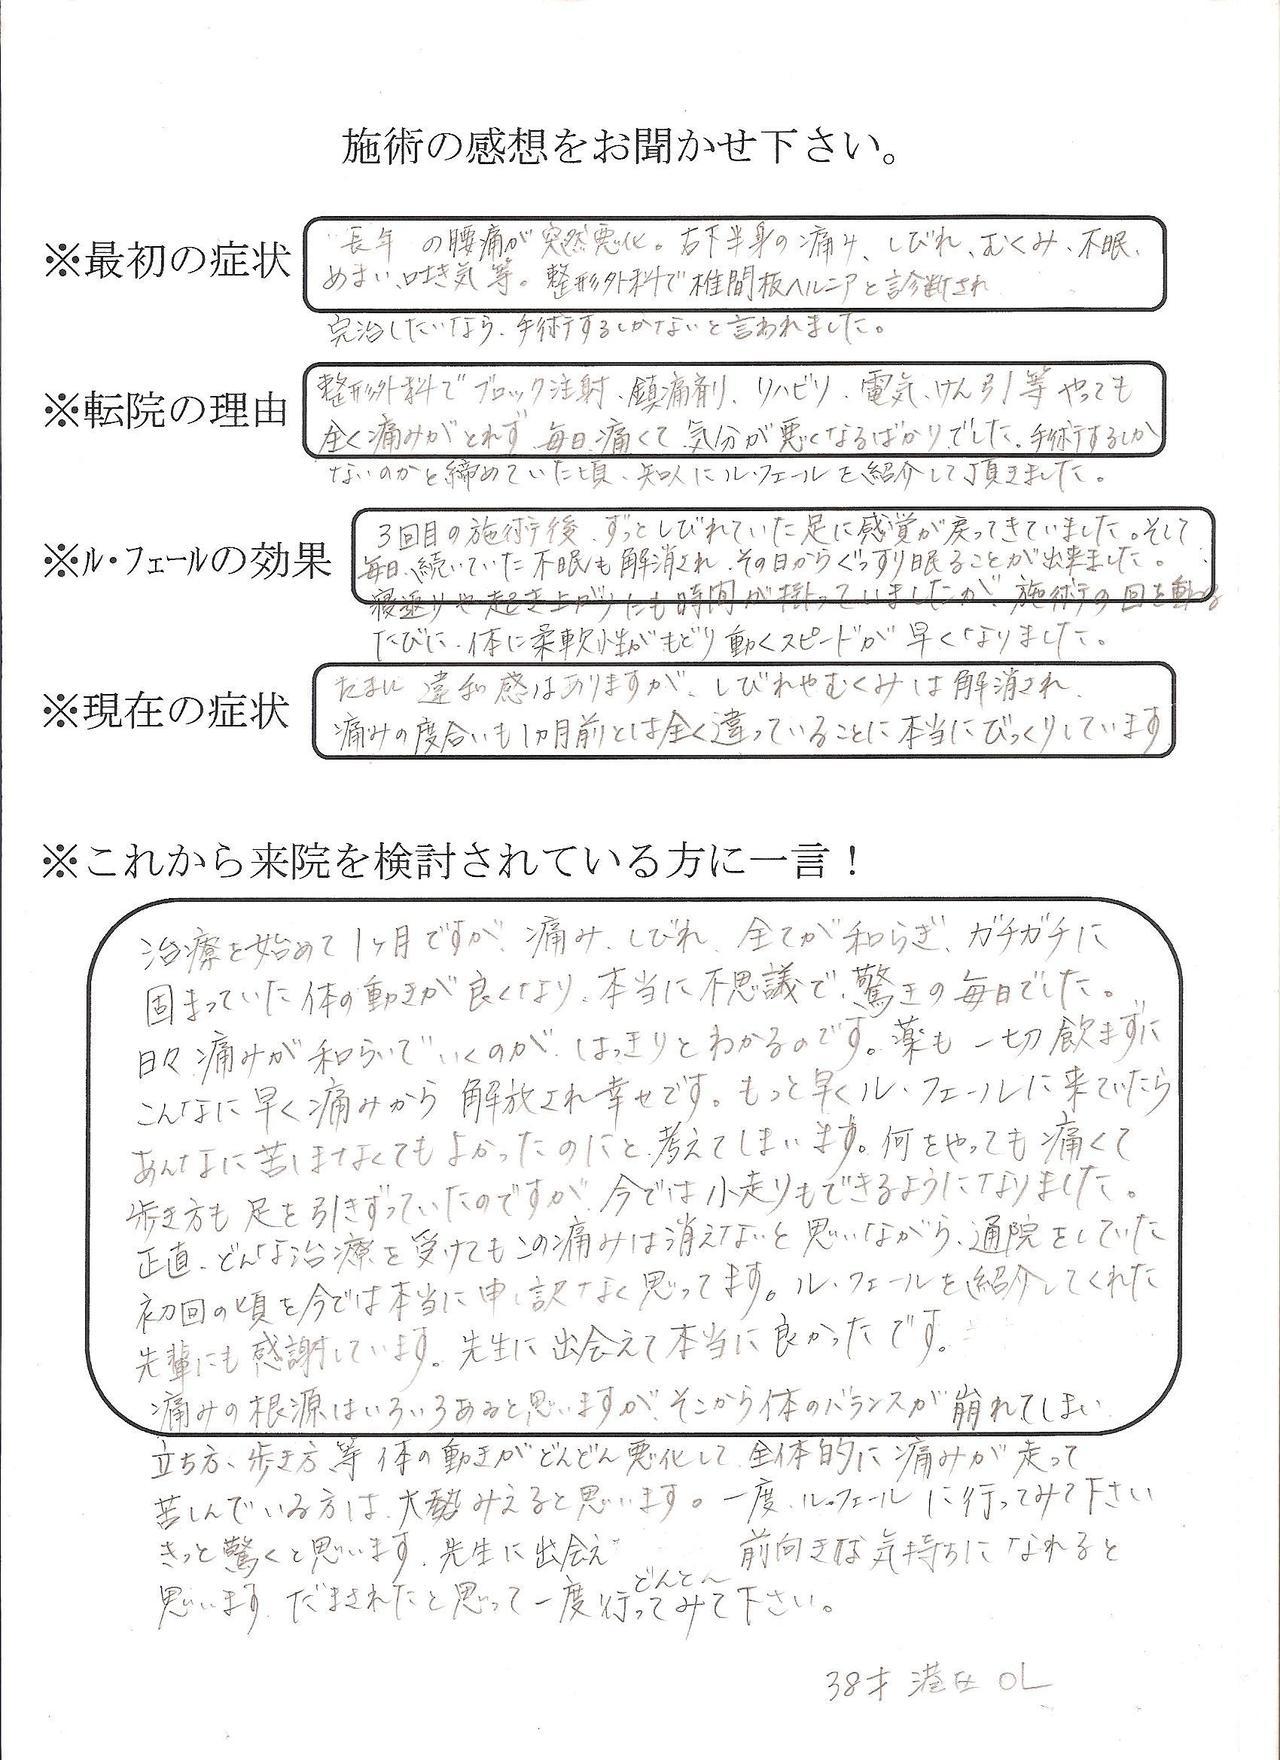 施術の感想をお聞かせ下さい。
※最初の症状
長年 の腰痛が 突然悪化。右下半身の痛み、しびれ、むくみ、不眠、
めまい、吐き気 等。整形外科で椎間板ヘルニアと診断され
完治したいなら、手術するしかないと言われました。
※転院の理由
整形外科でブロック注射、鎮痛剤、リハビリ、電気、けん引等やっても
全く痛みがとれず 毎日痛くて 気分が悪くなるばかりでした。手術するしか
ないのかと締めていた頃、知人にル・フェールを紹介して頂きました。
※ル・フェールの効果
3回目の施術後、ずっとしびれていた足に感覚が戻ってきていました。そして
毎日続いていた不眠も解消され、その日からぐっすり眠ることが出来ました。
寝返りや起き上がりにも時間が掛っていましたが、施術の回を重ねる
たびに、体に柔軟性がもどり動くスピードが早くなりました。
※現在の症状
たまに 違和感はありますが、しびれやむくみは解消され、
痛みの度合いも1ヵ月前とは全く違っていることに本当にびっくりしています
※これから来院を検討されている方に一言！
治療を始めて1ヶ月ですが、痛み、しびれ、全てが和らぎ、ガチガチに
固まっていた体の動きが良くなり、本当に不思議で、驚きの毎日でした。
日々痛みが和らいでいくのが、はっきりとわかるのです。薬も一切飲まずに
こんなに早く痛みから解放され幸せです。もっと早くル・フェールに来ていたら
あんなに苦しまなくてもよかったのにと考えてしまいます。何をやっても痛くて
歩き方も足を引きずっていたのですが、今では小走りもできるようになりました。
正直、どんな治療を受けてもこの痛みは消えないと思いながら、通院をしていた
初回の頃を今では本当に申し訳なく思ってます。ル・フェールを紹介してくれた
先輩にも感謝しています。先生に出会えて本当に良かったです。
痛みの根源はいろいろあると思いますが、そこから体のバランスが崩れてしまい
立ち方、歩き方 等 体の動きがどんどん悪化して、全体的に痛みが走って
苦しんでいる方は、大勢みえると思います。一度、ル・フェールに行ってみて下さい
きっと驚くと思います。先生に出会え
どんどん
前向きな気持ちになれると
思います。だまされたと思って一度行ってみて下さい。
38才 港区 OL